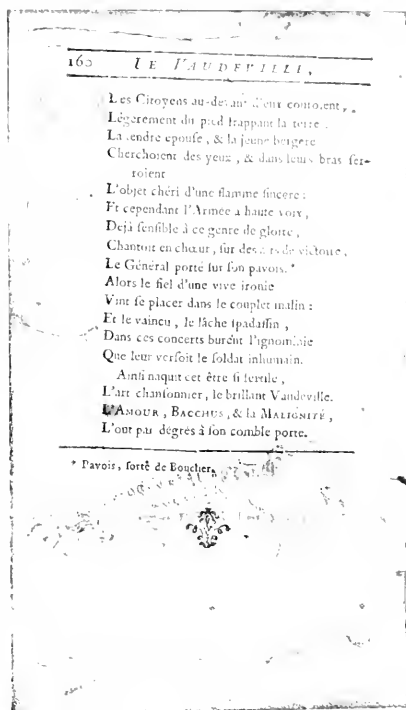 160 LE VAUDEVILLE,
Les Citoyens au-devant d'eux couroient,
Légerement du pied frappant la terre :
La tendre epouse, & la jeune bergere
Cherchoient des yeux, & dans leurs bras ser-
roient
L'objet chéri d'une flamme sincere :
Et cependant l'Armée a haute voix,
Deja sensible à ce genre de gloire,
Chantoit en chœur, sur des airs de victoire,
Le Général porté sur son pavois. *
Alors le fiel d'une vive ironie
Vint se placer dans le couplet malin :
Et le vaincu, le lâche spadassin,
Dans ces concerts burent l'ignominie
Que leur versoit le soldat inhumain.
Ainsi naquit cet être si fertile,
L'art chansonnier, le brillant Vaudeville.
L'AMOUR, BACCHUS, & la MALIGNITÉ,
L'ont par dégrés à son comble porté.
* Pavois, sorte de Bouclier.